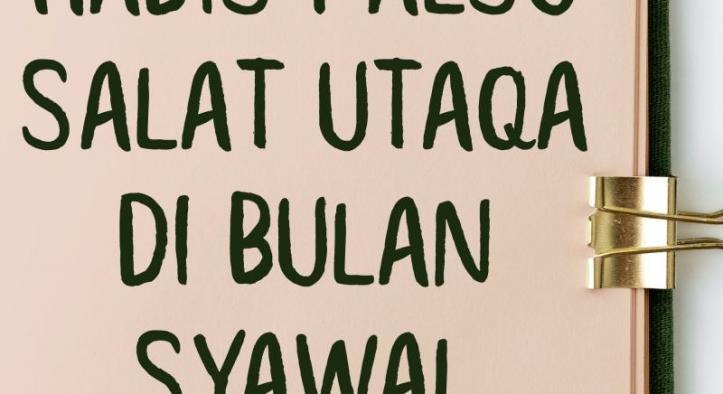 HADIS PALSU
SALAT UTAQA
DI BULAN
SYAWAL